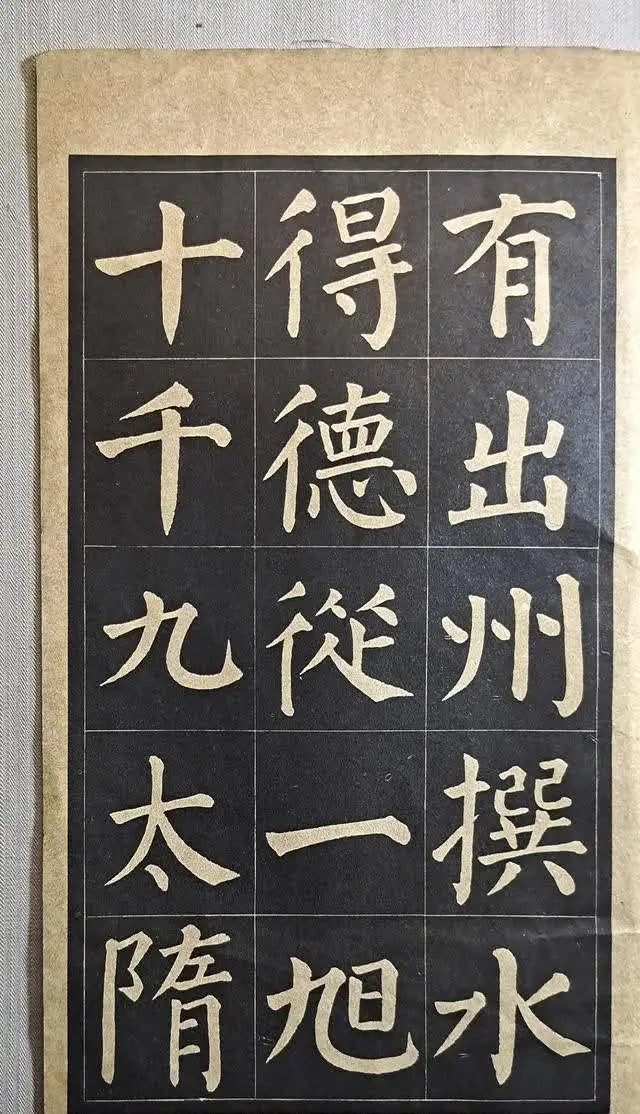 有出州撰水
得德從一旭
十千九太隋